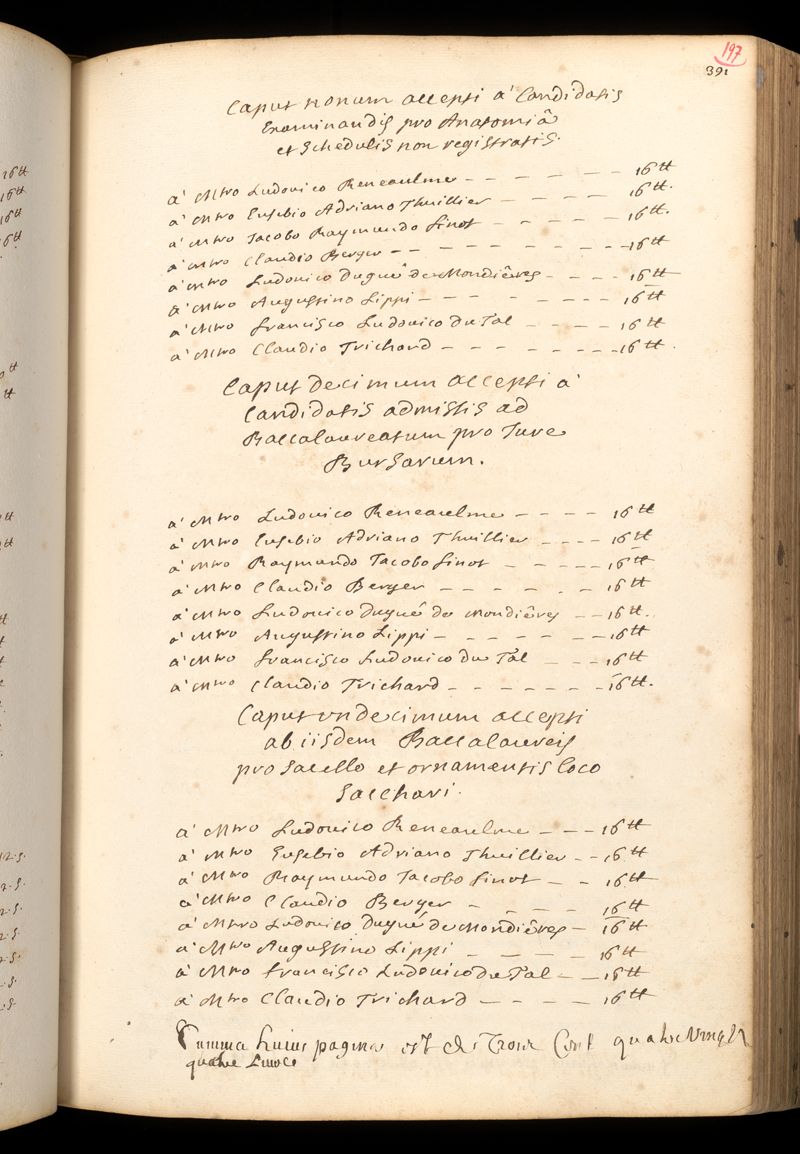 197
391
Caput nonum accepti a' Candidatis
Examinandis pro Anatomiâ
et schedulis non registratis.
a' Mtro Ludovico Reneaulme - - - - - - 16tt
a' Mtro Eusebio Adriano Thuillier - - - - 16tt.
a' Mtro Jacobo Raymundo Finot - - - - - 16tt.
a' Mtro Claudio Berger - - - - - - - - 16tt
a' Mtro Ludovico Dugué de Mondiêres - - - - 16tt
a' Mtro Augustino Lippi - - - - - - - 16tt
a' Mtro Francisco Ludovico Du Tal - - - - 16tt
a' Mtro Claudio Trichard - - - - - - - 16tt.
Caput decimum accepti a'
Candidatis admissis ad
Baccalaureatum pro Jure
Bursarum.
a' Mtro Ludovico Reneaulme - - - - 16tt
a' Mtro Eusebio Adriano Thuillier - - - - 16tt
a' Mtro Raymundo Jacobo Finot - - - - - 16tt
a' Mtro Claudio Berger - - - - - - - 16tt
a' Mtro Ludovico Dugué de Mondiêres - - 16tt.
a' Mtro Augustino Lippi - - - - - - - 16tt
a' Mtro Francisco Ludovico Du Tal - - - 16tt
a' Mtro Claudio Trichard - - - - - - - 16tt.
Caput undecimum accepti
ab iisdem Baccalaureis
pro sacello et ornamentis loco
sacchari.
a' Mtro Ludovico Reneaulme - - - 16tt
a' Mtro Eusebio Adriano Thuillier - - 16tt
a' Mtro Raymundo Jacobo Finot - - 16tt
a' Mtro Claudio Berger - - - - 16tt
a' Mtro Ludovico Dugué de Mondiêres - 16tt
a' Mtro Augustino Lippi - - - - 16tt
a' Mtro Francisco Ludovico Du Tal - - 16tt
a' Mtro Claudio Trichard - - - - 16tt
Summa huius paginae est de Trois Cent quatre Vingt
quatre Livres